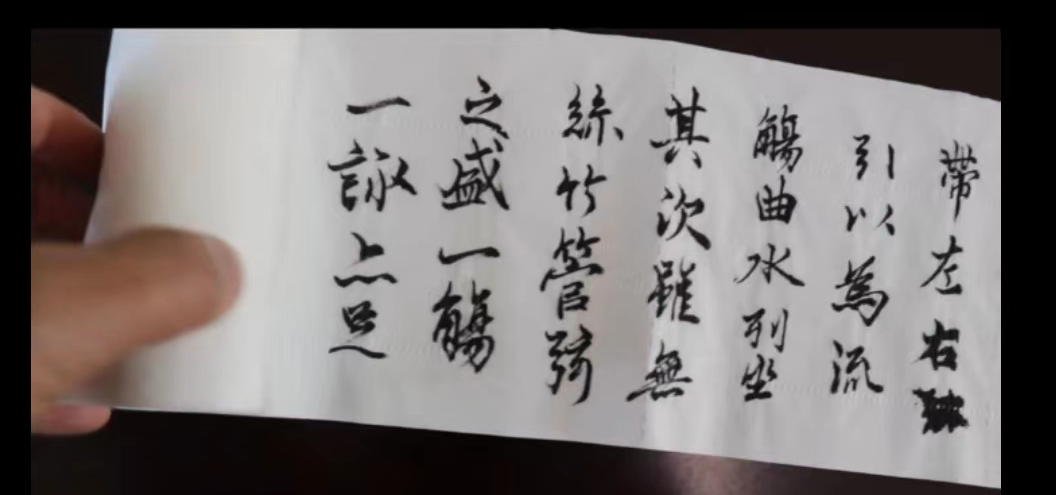 帶左右
引以為流
觴曲水列坐
其次雖無
絲竹管弦
之盛一觴
一詠亦足